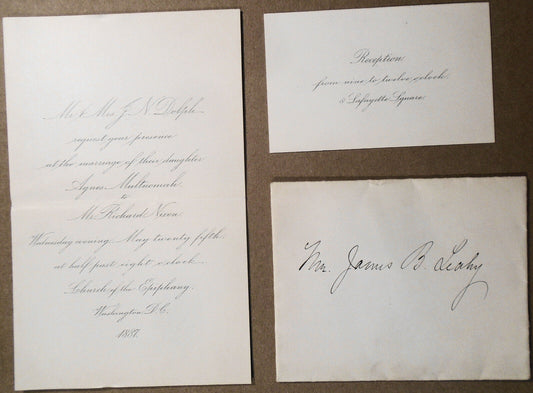 Mr & Mrs J. N. Dolph
request your presence
at the marriage of their daughter
Agnes Multnomah
to
Mr Richard Nixon
Wednesday evening, May twenty fifth,
at half past eight o'clock.
Church of the Epiphany.
Washington D.C.
1887.
Reception
from nine to twelve o'clock
8 Lafayette Square.
Mr. James B. Leahy